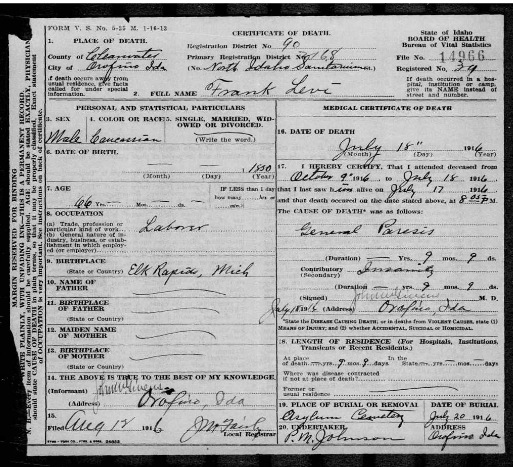 FORM V. S. No. 5-25 M. 1-16-12
CERTIFICATE OF DEATH
State of Idaho
BOARD OF HEALTH
Bureau of Vital Statistics
1. PLACE OF DEATH.
Registration District No. 90
County of Clearwater
Primary Registration District No. 1168
File No. 14966
City of Orofino Ida
(No. North Idaho Sanitarium
Registered No. 29
If death occurs away from usual residence, give facts called for under special information.
If death occurred in a hospital, institution or camp give its NAME instead of street and number.
2. FULL NAME Frank Levi
PERSONAL AND STATISTICAL PARTICULARS
MEDICAL CERTIFICATE OF DEATH
3. SEX
4. COLOR OR RACE
5. SINGLE, MARRIED, WIDOWED OR DIVORCED.
Male Caucassian
(Write the word.)
16. DATE OF DEATH
July 18" 1916
(Month) (Day) (Year)
6. DATE OF BIRTH
1850
(Month) (Day) (Year)
17. I HEREBY CERTIFY, That I attended deceased from
October 9" 1916 to July 18 1916
7. AGE
IF LESS than 1 day
66 Yrs. mos. ds.
how many hrs. or min.
that I last saw him alive on July 17 1916
and that death occurred on the date stated above, at 8 05 P M.
The CAUSE OF DEATH* was as follows:
General Paresis
8. OCCUPATION
(a) Trade, profession or particular kind of work
(b) General nature of industry, business, or establishment in which employed (or employer)
Laborer
(Duration) Yrs. 9 mos. 9 ds.
Contributory Insanity
(Secondary)
9. BIRTHPLACE
(State or Country) Elk Rapids, Mich
10. NAME OF FATHER
(Duration) Yrs. 9 mos. 9 ds.
(Signed) John W. Givens M. D.
July 18 1916 Orofino, Ida
11. BIRTHPLACE OF FATHER
(State or Country)
*State the DISEASE CAUSING DEATH, or in deaths from VIOLENT CAUSES, state (1) MEANS OF INJURY; and (2) whether ACCIDENTAL, SUICIDAL OR HOMICIDAL.
12. MAIDEN NAME OF MOTHER
18. LENGTH OF RESIDENCE (For Hospitals, Institutions, Transients or Recent Residents.)
13. BIRTHPLACE OF MOTHER
(State or Country)
At place of death yrs. 9 mos. 9 days. In the State yrs. mos. days
Where was disease contracted if not at place of death?
14. THE ABOVE IS TRUE TO THE BEST OF MY KNOWLEDGE
(Informant) John W Givens
Former or usual residence
(Address) Orofino, Ida
19. PLACE OF BURIAL OR REMOVAL
DATE OF BURIAL
Asylum Cemetery
July 20 1916
15.
Filed Aug 12 1916 J M Fairly
Local Registrar
20. UNDERTAKER
ADDRESS
P. M. Johnson
Orofino Ida
MARGIN RESERVED FOR BINDING
WRITE PLAINLY, WITH UNFADING INK—THIS IS A PERMANENT RECORD